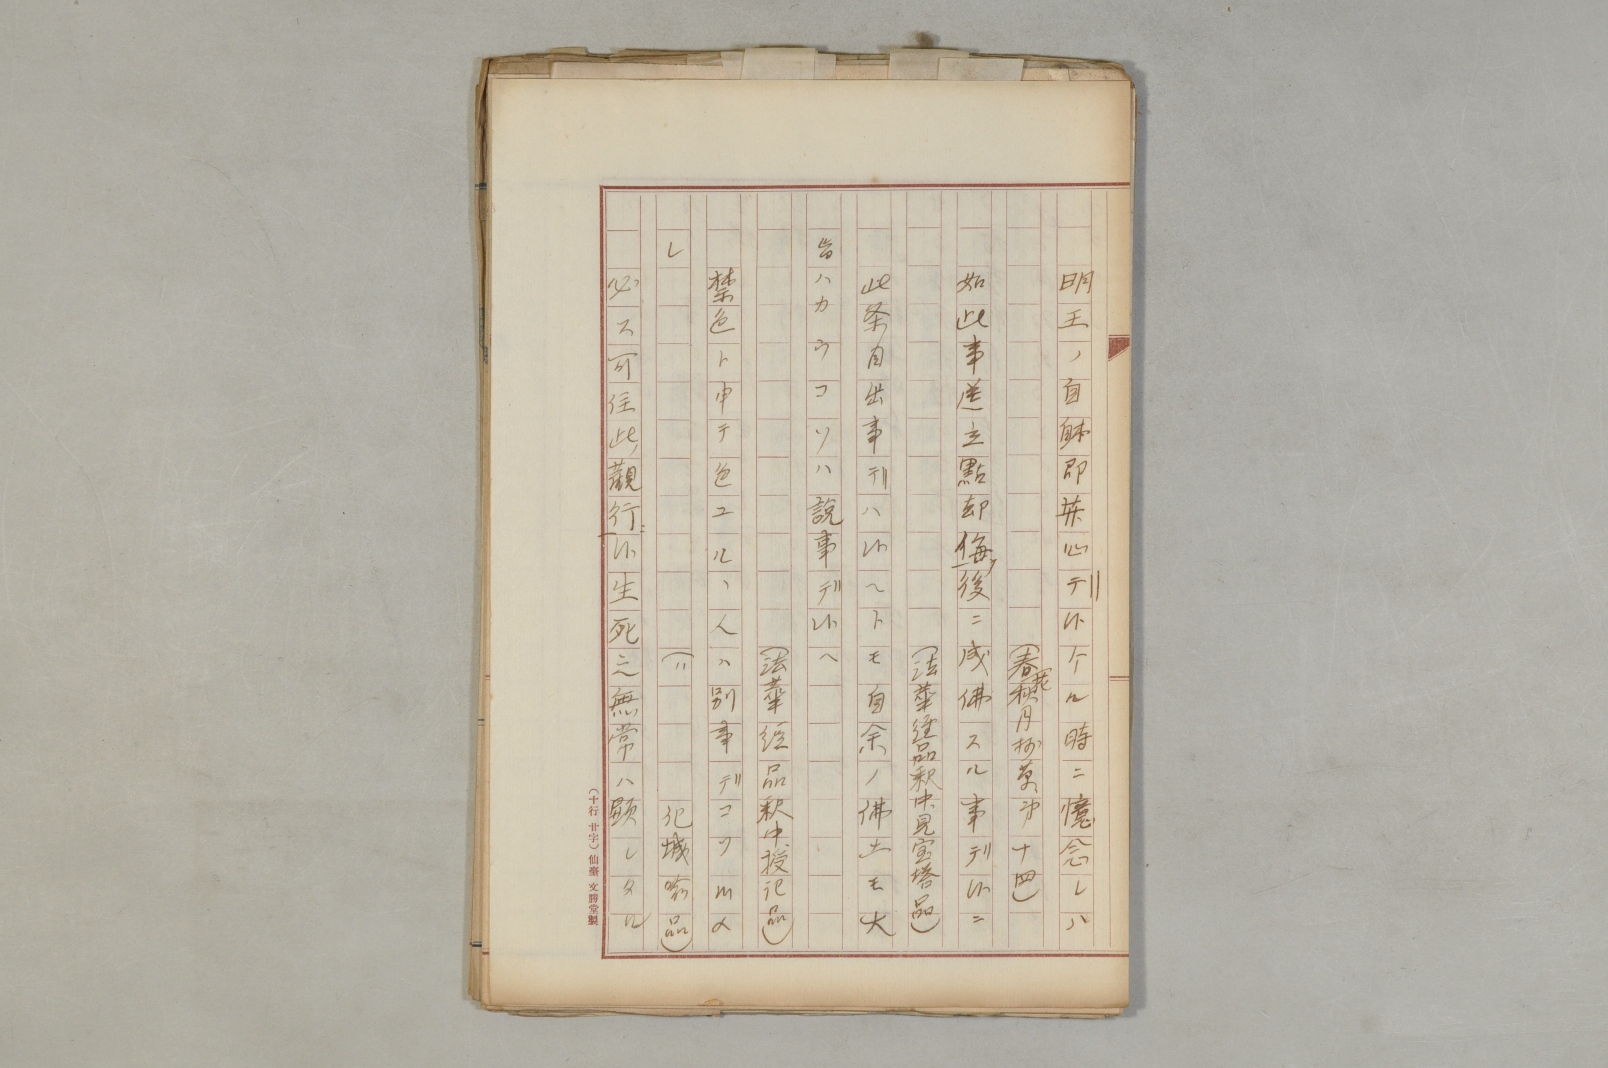 明王ノ自躰即菩心デ候ケル時ニ憶念シハ
(春秋花月抄草第十四)
如此事道立點却侮後ニ成佛スル事デ候ニ
(法華経品釈中見宝塔品)
此条自出事デハ候ヘトモ自余ノ佛土モ大
旨ハカウコソハ説事デ候ヘ
(法華経品釈中授記品)
禁色ト申テ色ユルヽ人ハ別事デコソ候メ
レ
(〃 化城喩品)
必ス可住此観行候生死之無常ハ顕レタル
(十行 廿字)仙臺 文勝堂製